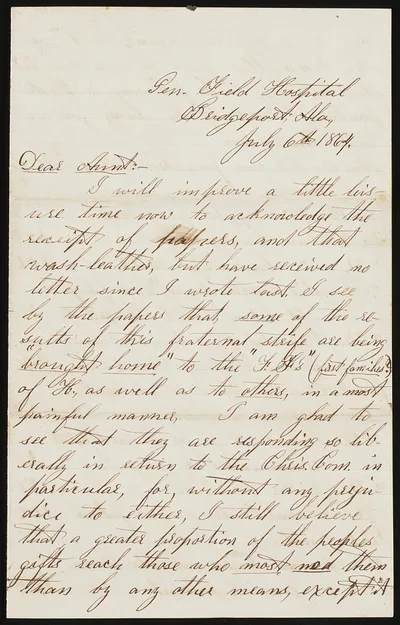 Gen. Field Hospital
Bridgeport Ala,
July 6th 1864.
Dear Aunt:-
I will improve a little leis-
ure time now to acknowledge the
receipt of papers, and that
wash-leather, but have received no
letter since I wrote last. I see
by the papers that some of the re-
sults of this fraternal strife are being
"brought home" to the "F. F's" (first families)
of H., as well as to others, in a most
painful manner. I am glad to
see that they are responding so lib-
erally in return to the Chris. Com. in
particular, for, without any preju-
dice to either, I still believe
that a greater proportion of the peoples
gifts reach those who most need them
than by any other means, except it